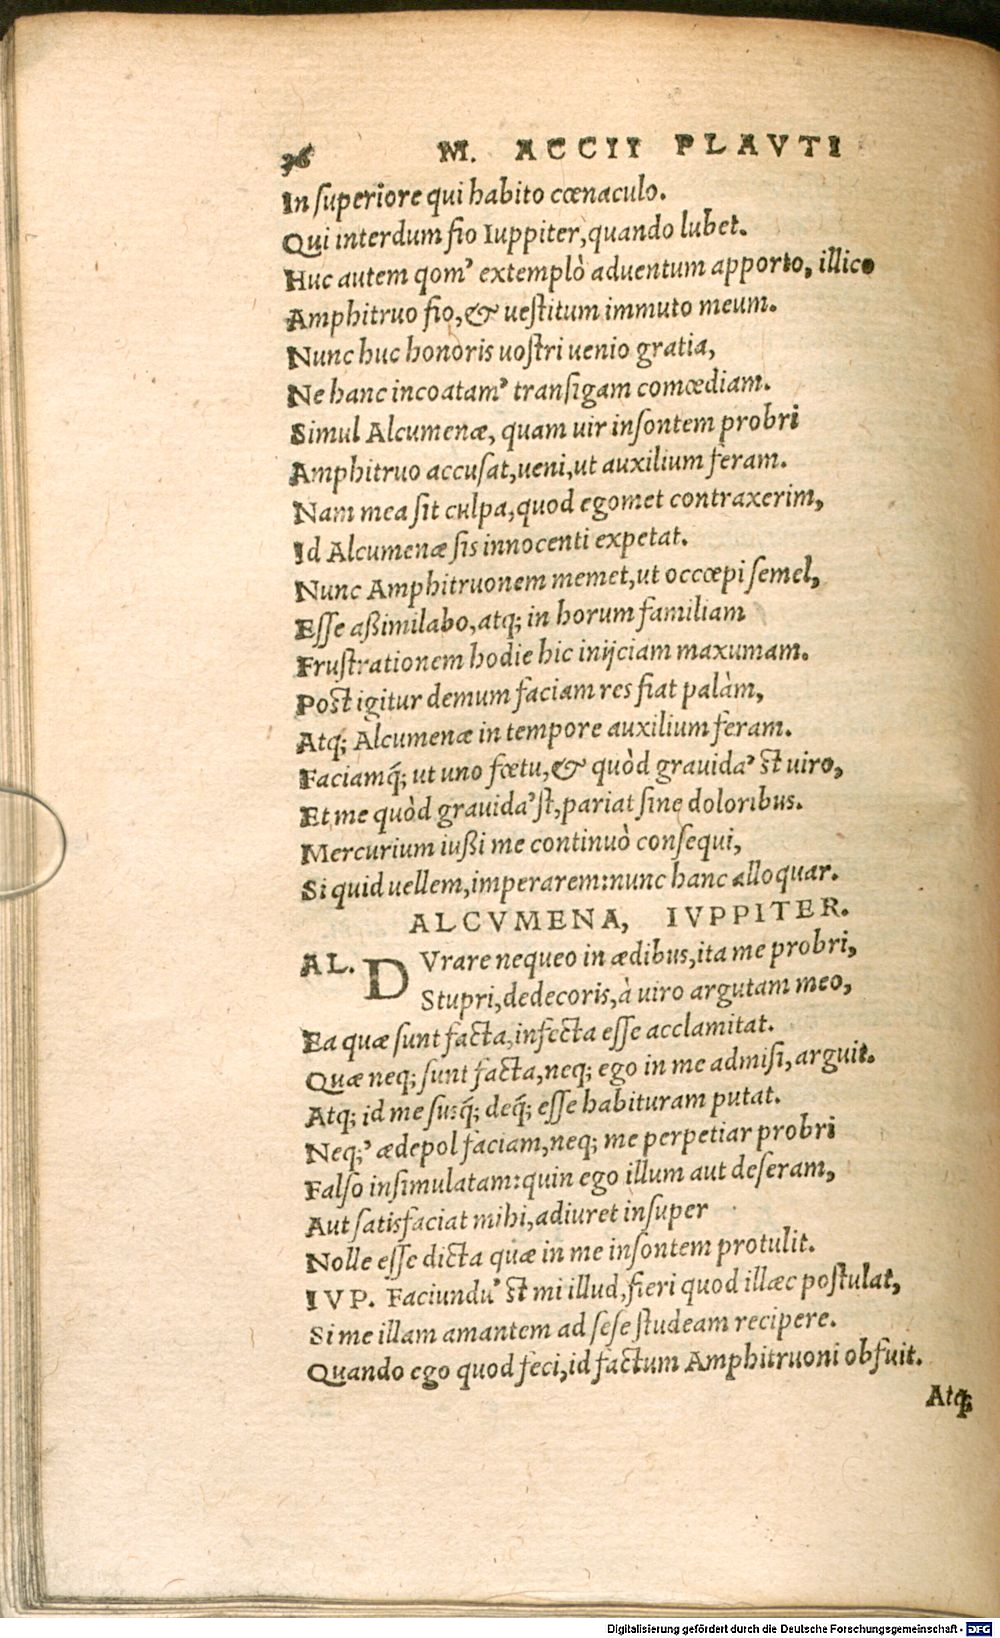 36 M. ACCII PLAVTI
In superiore qui habito cœnaculo.
Qui interdum fio Iuppiter, quando lubet.
Huc autem qom’ extemplò aduentum apporto, illico
Amphitruo fio, & uestitum immuto meum.
Nunc huc honoris uostri uenio gratia,
Ne hanc incoatam’ transigam comœdiam.
Simul Alcumenæ, quam uir insontem probri
Amphitruo accusat, ueni, ut auxilium feram.
Nam mea sit culpa, quod egomet contraxerim,
Id Alcumenæ sis innocenti expetat.
Nunc Amphitruonem memet, ut occœpi semel,
Esse aßimilabo, atq; in horum familiam
Frustrationem hodie hic inijciam maxumam.
Post igitur demum faciam res fiat palàm,
Atq; Alcumenæ in tempore auxilium feram.
Faciamq́; ut uno fœtu, & quòd grauida’ st uiro,
Et me quòd grauida’st, pariat sine doloribus.
Mercurium iußi me continuò consequi,
Si quid uellem, imperarem: nunc hanc alloquar.
ALCVMENA, IVPPITER.
AL. DVrare nequeo in ædibus, ita me probri,
Stupri, dedecoris, à uiro argutam meo,
Ea quæ sunt facta, infecta esse acclamitat.
Quæ neq; sunt facta, neq; ego in me admisi, arguit.
Atq; id me susq́; deq́; esse habituram putat.
Neq;’ ædepol faciam, neq; me perpetiar probri
Falso insimulatam: quin ego illum aut deseram,
Aut satisfaciat mihi, adiuret insuper
Nolle esse dicta quæ in me insontem protulit.
IVP. Faciundu’ st mi illud, fieri quod illæc postulat,
Si me illam amantem ad sese studeam recipere.
Quando ego quod feci, id factum Amphitruoni obfuit.
Atq;
Digitalisierung gefördert durch die Deutsche Forschungsgemeinschaft - DFG